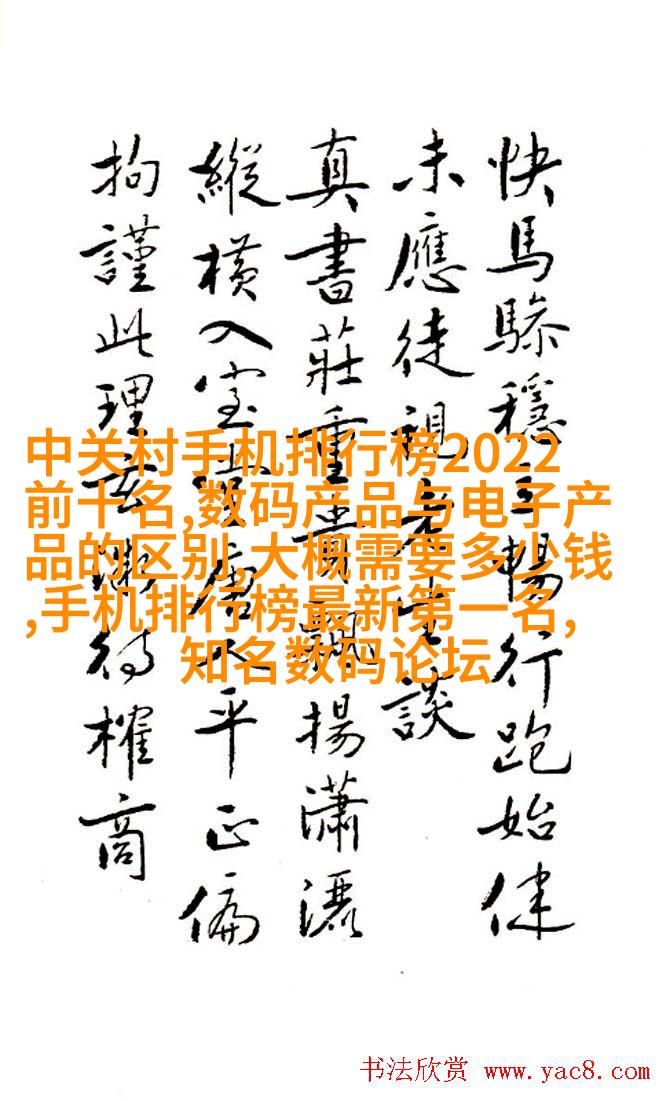 快馬穩暢行跑始健
未應徒視談
真書莊重貴飄揚瀟灑
縱橫入室平正偏
拘謹此理待榷商
中关村手机排行榜2022
前十名,数码产品与电子产
品的区别,大概需要多少钱
,手机排行榜最新第一名,
知名数码论坛
书法欣赏 www.yac8.com